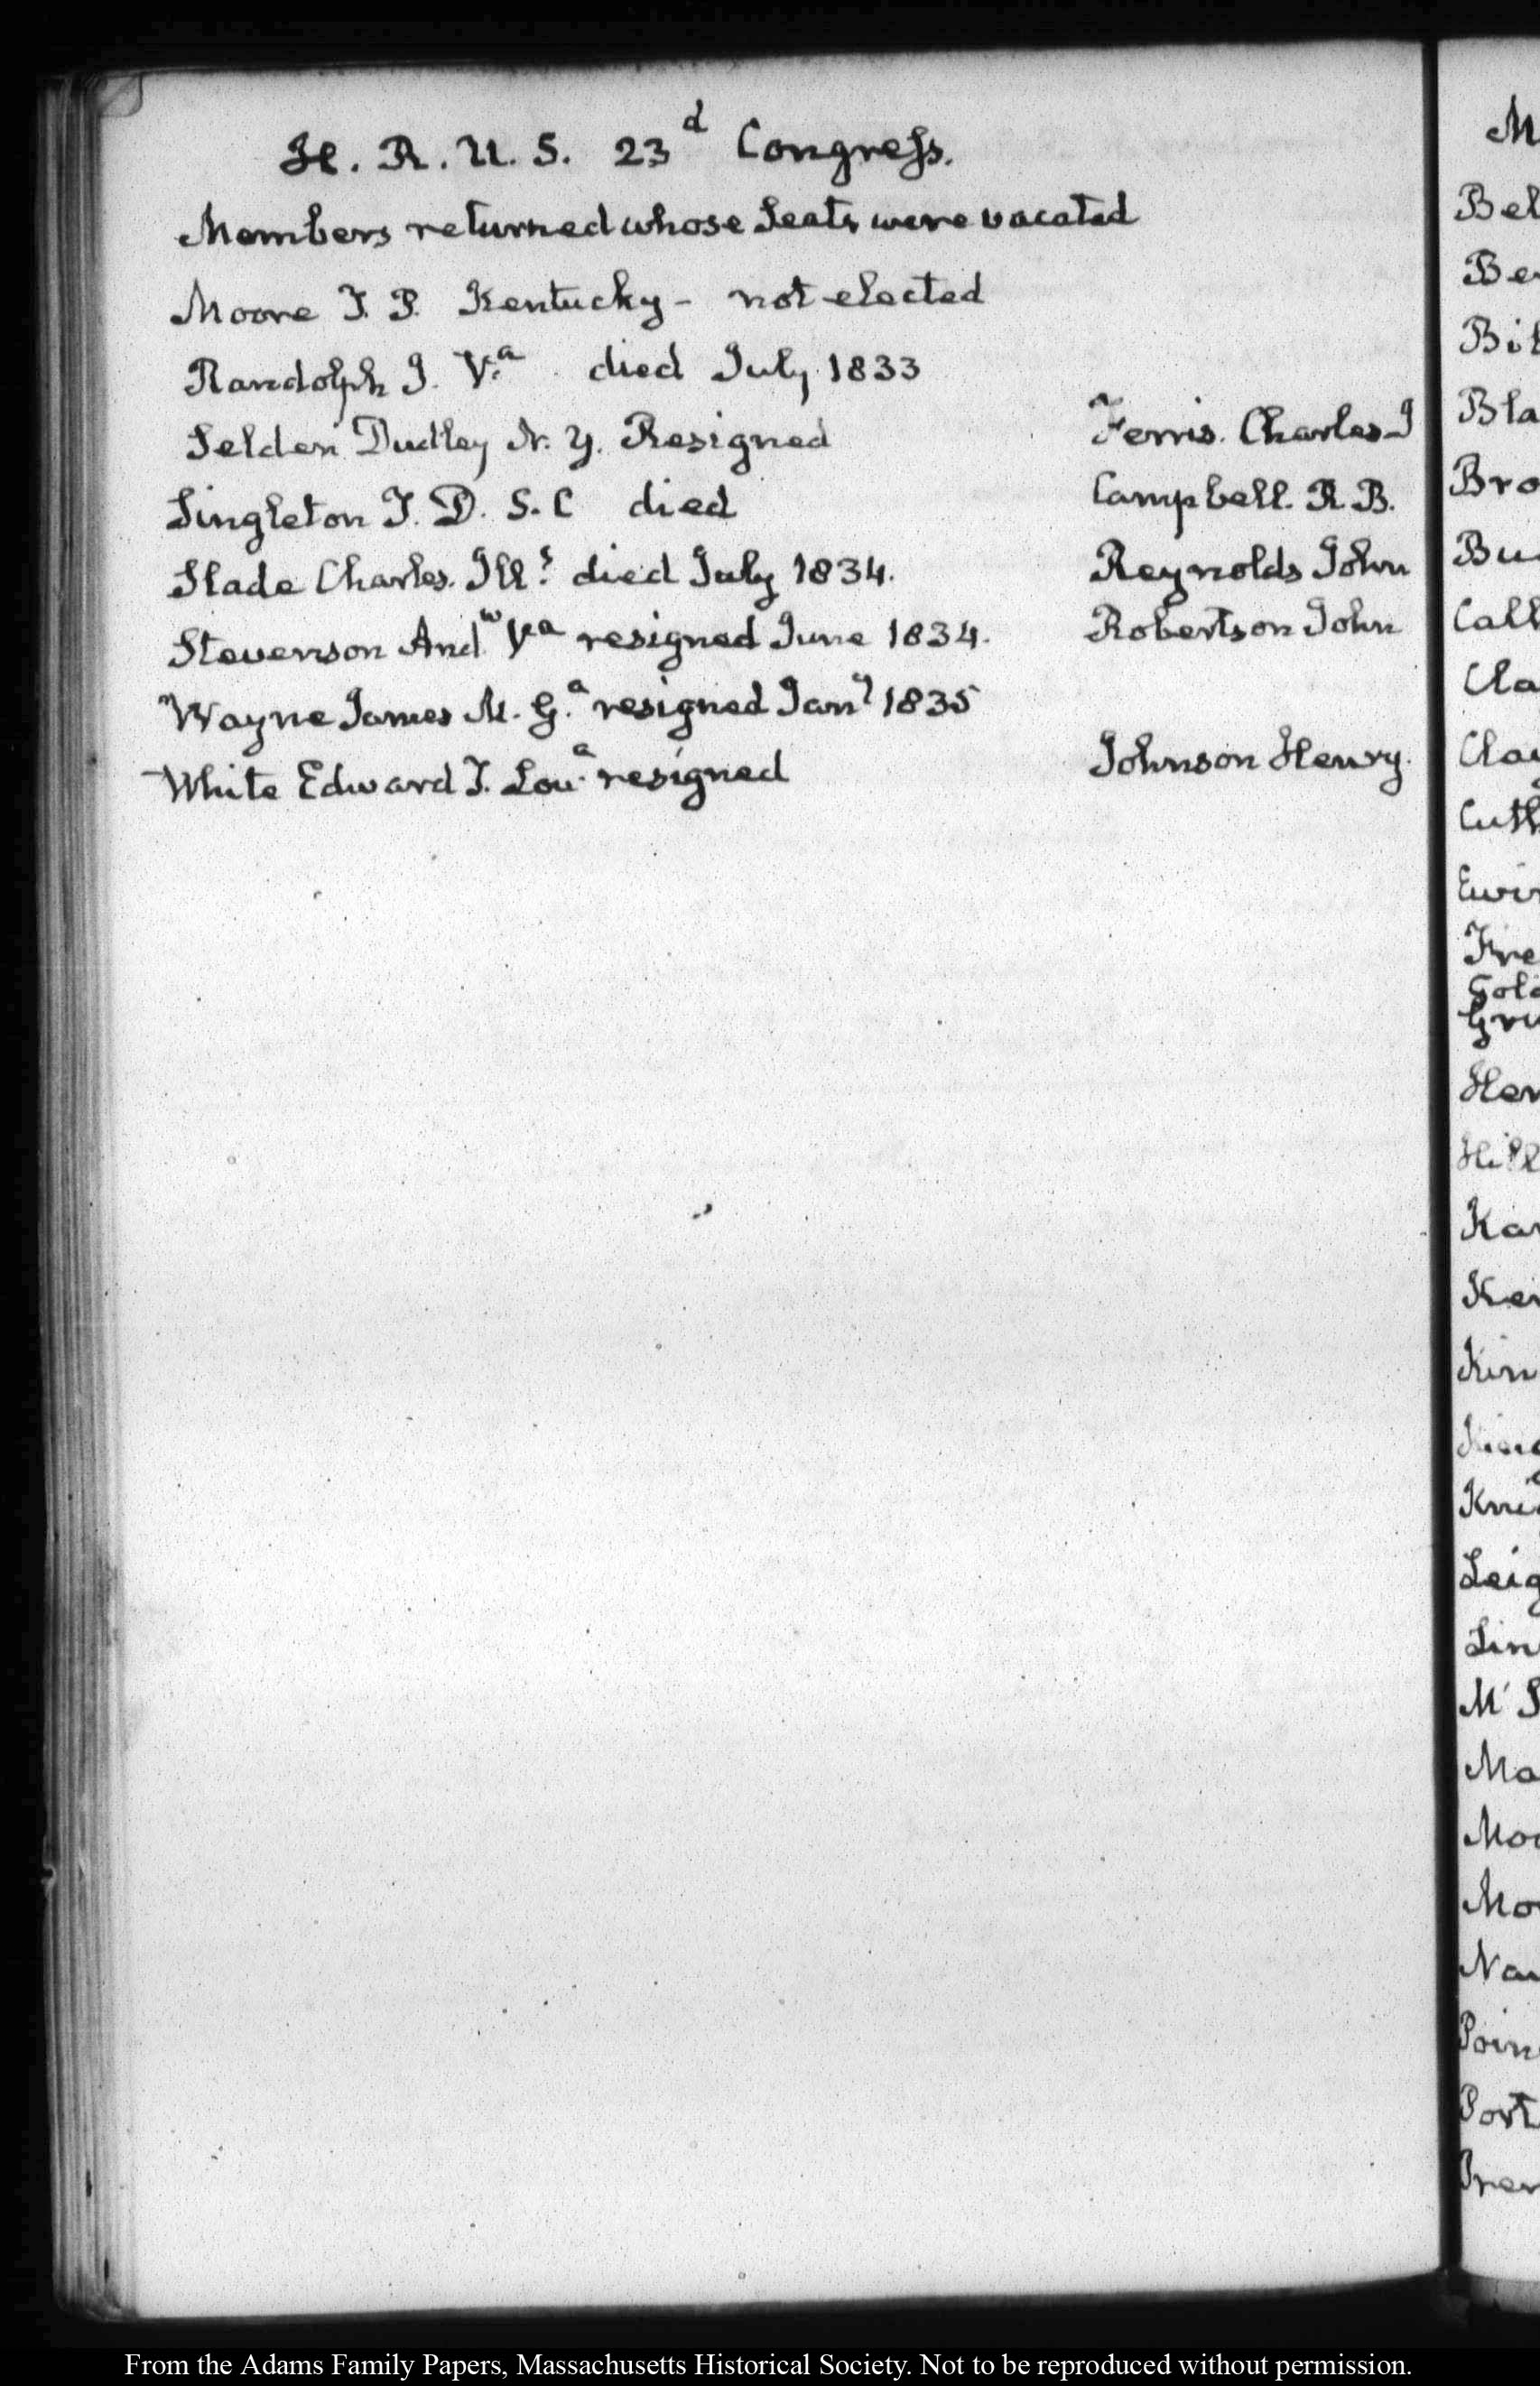 H. R. U. S. 23d Congress.
Members returned whose Seats were vacated
Moore T. P. Kentucky - not elected
Randolph J. Va. died July 1833
Selden Dudley N. Y. Resigned Ferris. Charles G
Singleton T. D. S. C died Campbell. R. B.
Slade Charles. Ills. died July 1834. Reynolds John
Stevenson Andw Va resigned June 1834. Robertson John
Wayne James M. Ga. resigned Jany 1835
White Edward D. Loua. resigned Johnson Henry.
M
Bel
Be
Bi
Bla
Bro
Bu
Cal
Cla
Clay
Cuth
Ewi
Fre
Gold
Gru
Hen
Hill
Ka
Ke
Kin
Kni
Leig
Lin
M
Ma
Moo
Mo
Nau
Poin
Port
Pren
From the Adams Family Papers, Massachusetts Historical Society. Not to be reproduced without permission.